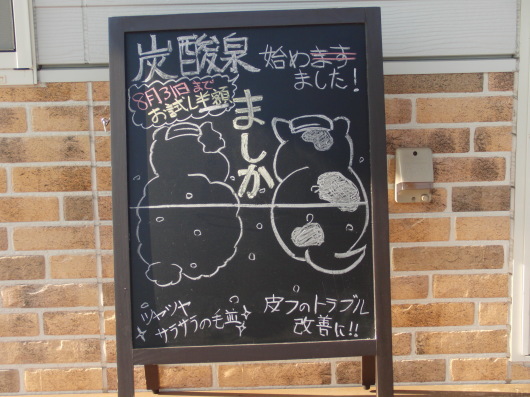 炭酸泉 始めます
ました！
8月31日まで
お試し半額
ましか
ツヤツヤ
サラサラの毛並
皮フのトラブル
改善に!!